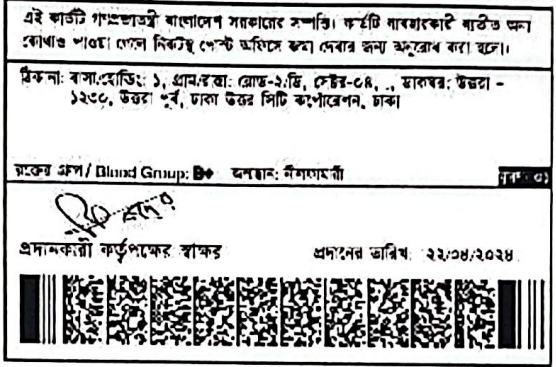 এই কার্ডটি গণপ্রজাতন্ত্রী বাংলাদেশ সরকারের সম্পত্তি। কার্ডটি ব্যবহারকারী ব্যতীত অন্য
কোথাও পাওয়া গেলে নিকটস্থ পোস্ট অফিসে জমা দেবার জন্য অনুরোধ করা হলো।
ঠিকানা: বাসা/হোল্ডিং: ১, গ্রাম/রাস্তা: রোড-২/ডি, সেক্টর-০৪, ., ডাকঘর: উত্তরা -
১২৩০, উত্তরা পূর্ব, ঢাকা উত্তর সিটি কর্পোরেশন, ঢাকা
রক্তের গ্রুপ / Blood Group: B+ জন্মস্থান: নীলফামারী
প্রদানকারী কর্তৃপক্ষের স্বাক্ষর প্রদানের তারিখ: ২২/০৪/২০২৪